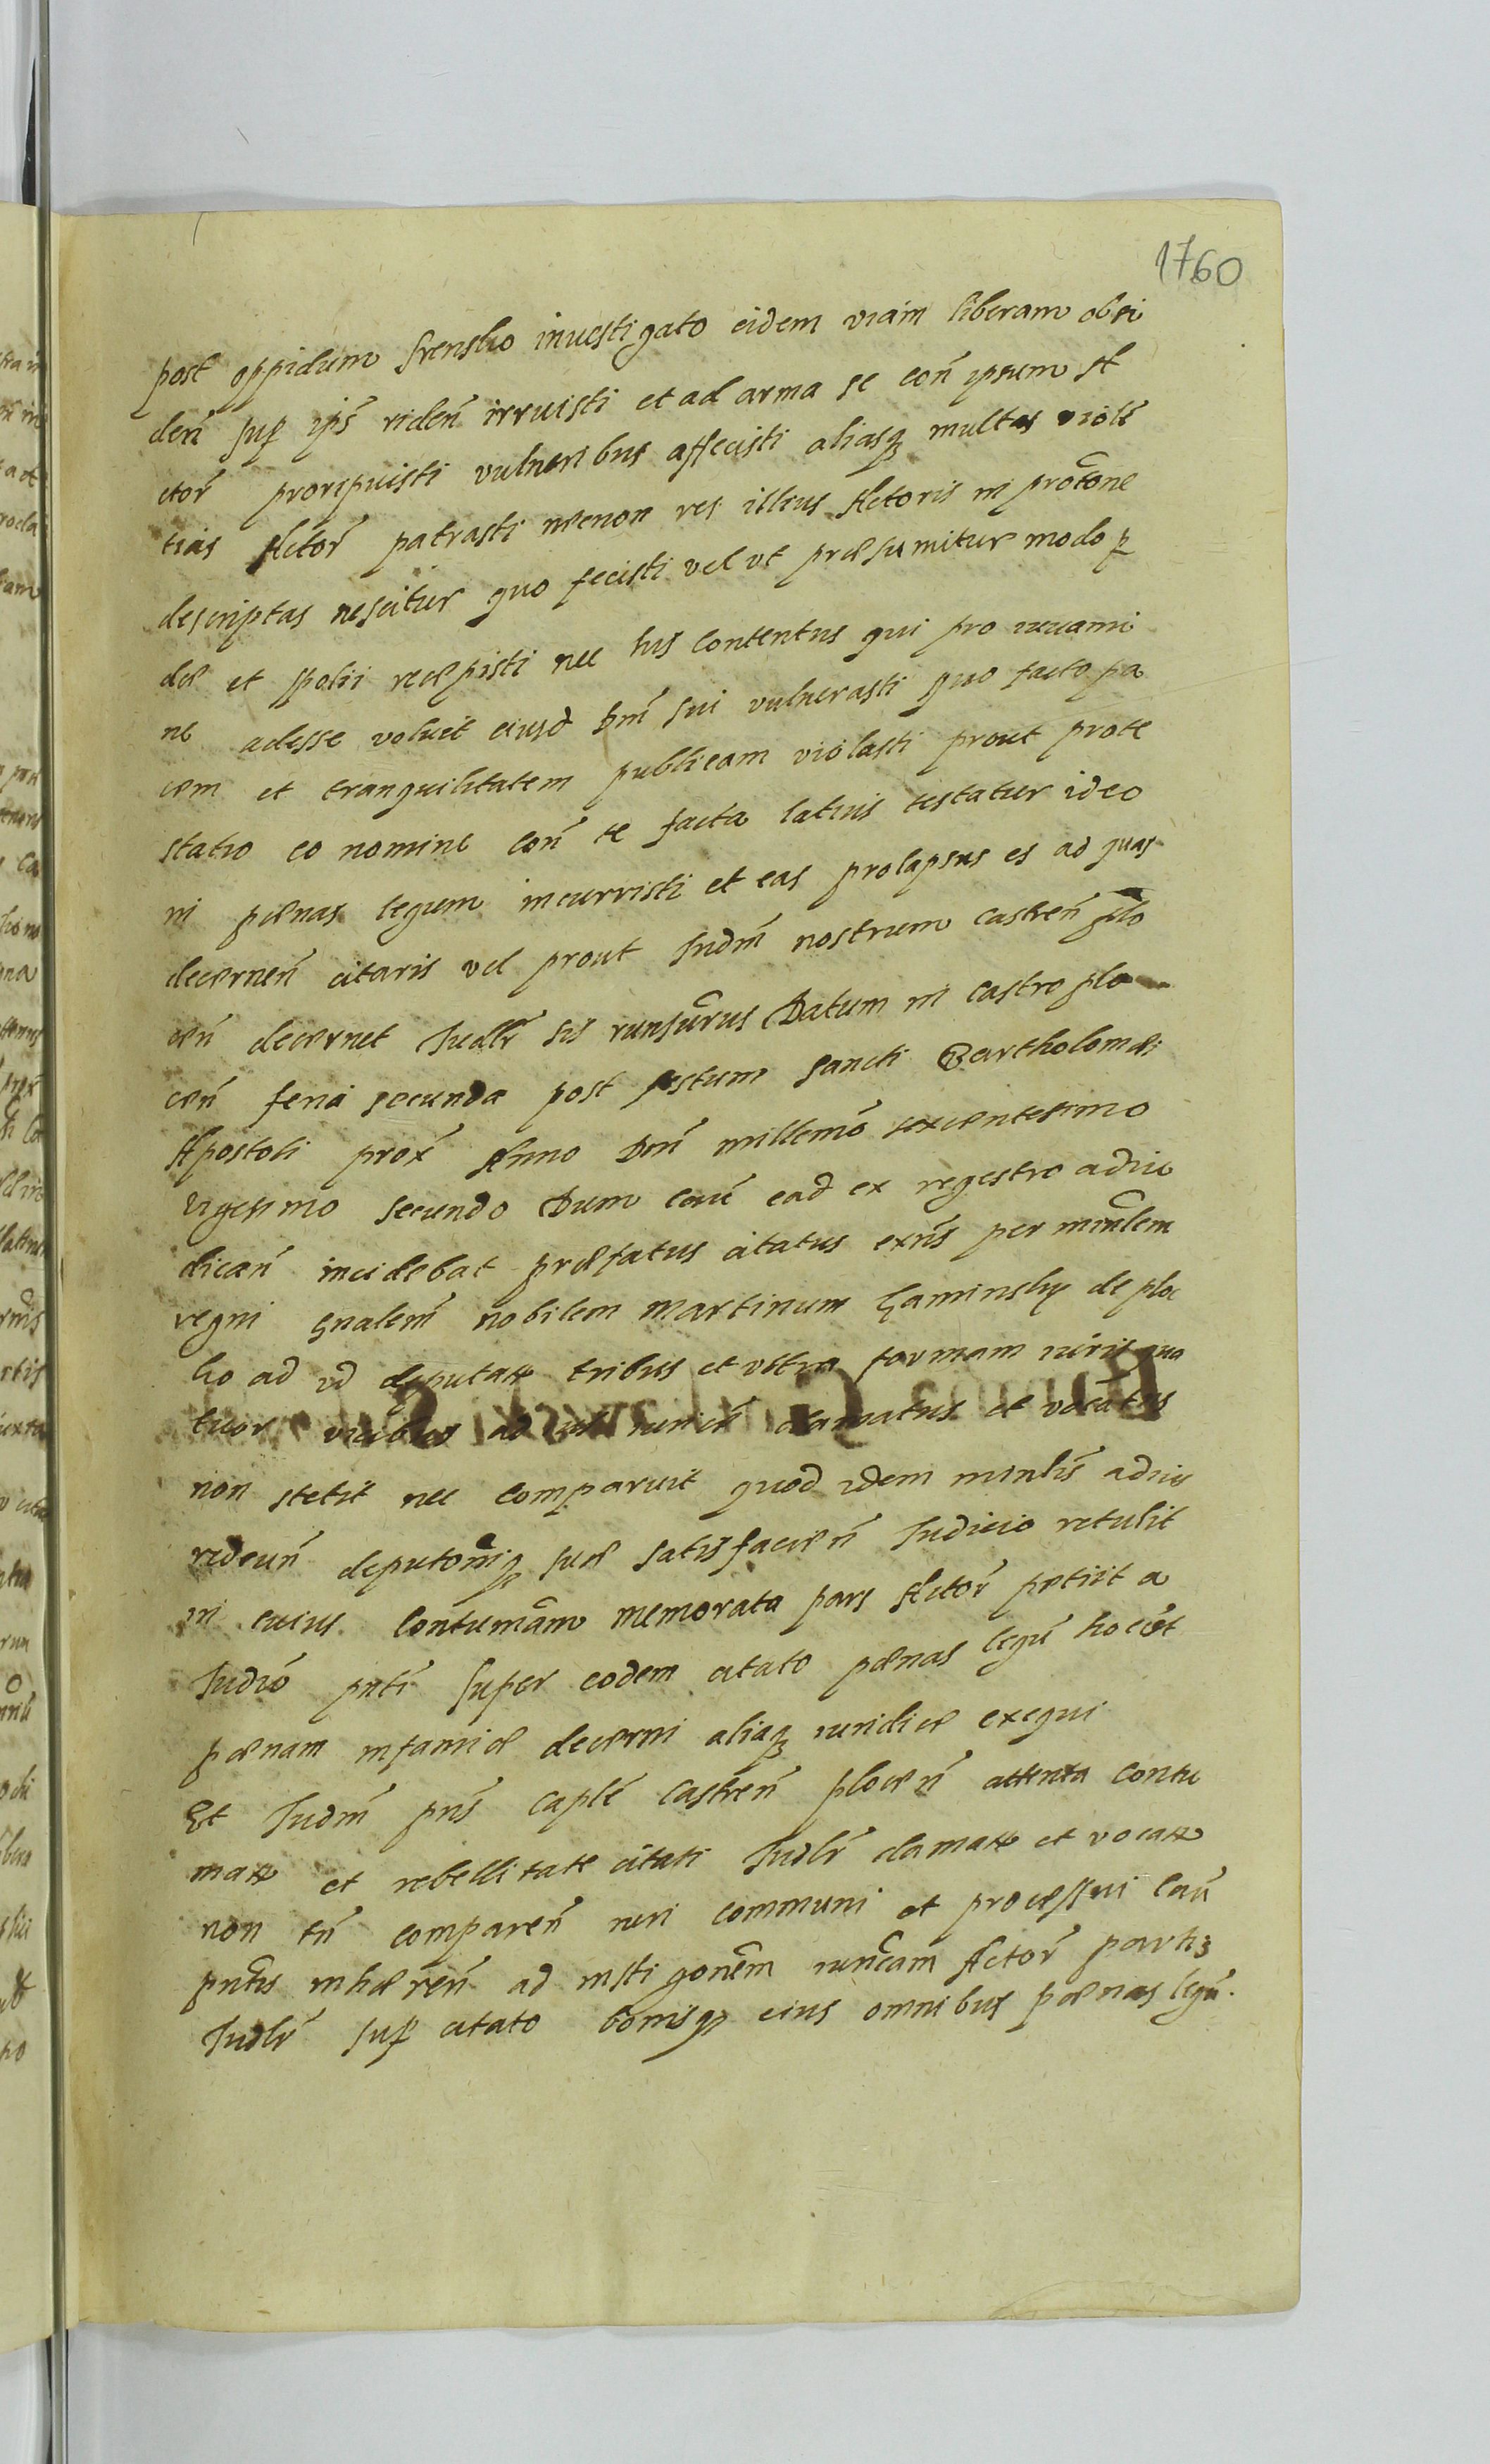 1760
post oppidum Srensko inuestigato eidem viam liberam obsi
den̄ sup ips̄ riden̄ irruisti et ad arma se con̄ ipsum A
ctor̄ proripuisti vulneribus affecisti aliasq multas violē
tias Actor̄ patrasti necnon res illius Actoris in protōne
descriptas nescitur quo fecisti vel vt præsumitur modo p
dæ et spolii recæpisti nec his contentus qui pro iuuami
ne adesse voluit eiusd Dnī sui vulnerasti quo facto pa
cem et tranquilitatem publicam violasti prout prote
statio eo nomine con̄ te facta latius testatur ideo
in pœnas legum incurristi et eas prolapsus es ad quas
decernen̄ citaris vel prout Iudm̄ nostrum castren̄ plo
cen̄ decernet Iudlr̄ sis runsūrus Datum in castro plo
cen̄ feria secunda post festum sancti Bartholomæi
Apostoli prox̄ Anno Dnī millemō sexcentesimo
vigesimo secundo Dum cau̅ ead ex regestro adiu
dican̄ incidebat præfatus citatus exn̄s per mīnlem
regni gnalem̄ nobilem Martinum Kaminsky de ploc
ko ad id deputatt tribus et vltra formam iuris qua
tuor vicibus ad iuricē clamatus et vocatus
non stetit nec comparuit quod idem minlis̄ adiu
rideun̄ deputōniq suæ satisfacien̄ Iudicio retulit
in cuius contumām memorata pars Actor̄ petiit a
Iudiō pntī super eodem citato pœnas legū hoc est
pœnam infamiæ decerni aliaq iuridicæ exequi
Et Iudm̄ pns̄ caplē castren̄ plocen̄ attenta contu
matt et rebellitate citati Iudlr̄ clamatt et vocatt
non tn̄ comparen̄ iuri communi et processui cau̅
pntis̄ inhæren̄ ad instigonēm iuricam Actor̄ partis
Iudlr̄ sup citato bonisq eius omnibus pœnas legū.